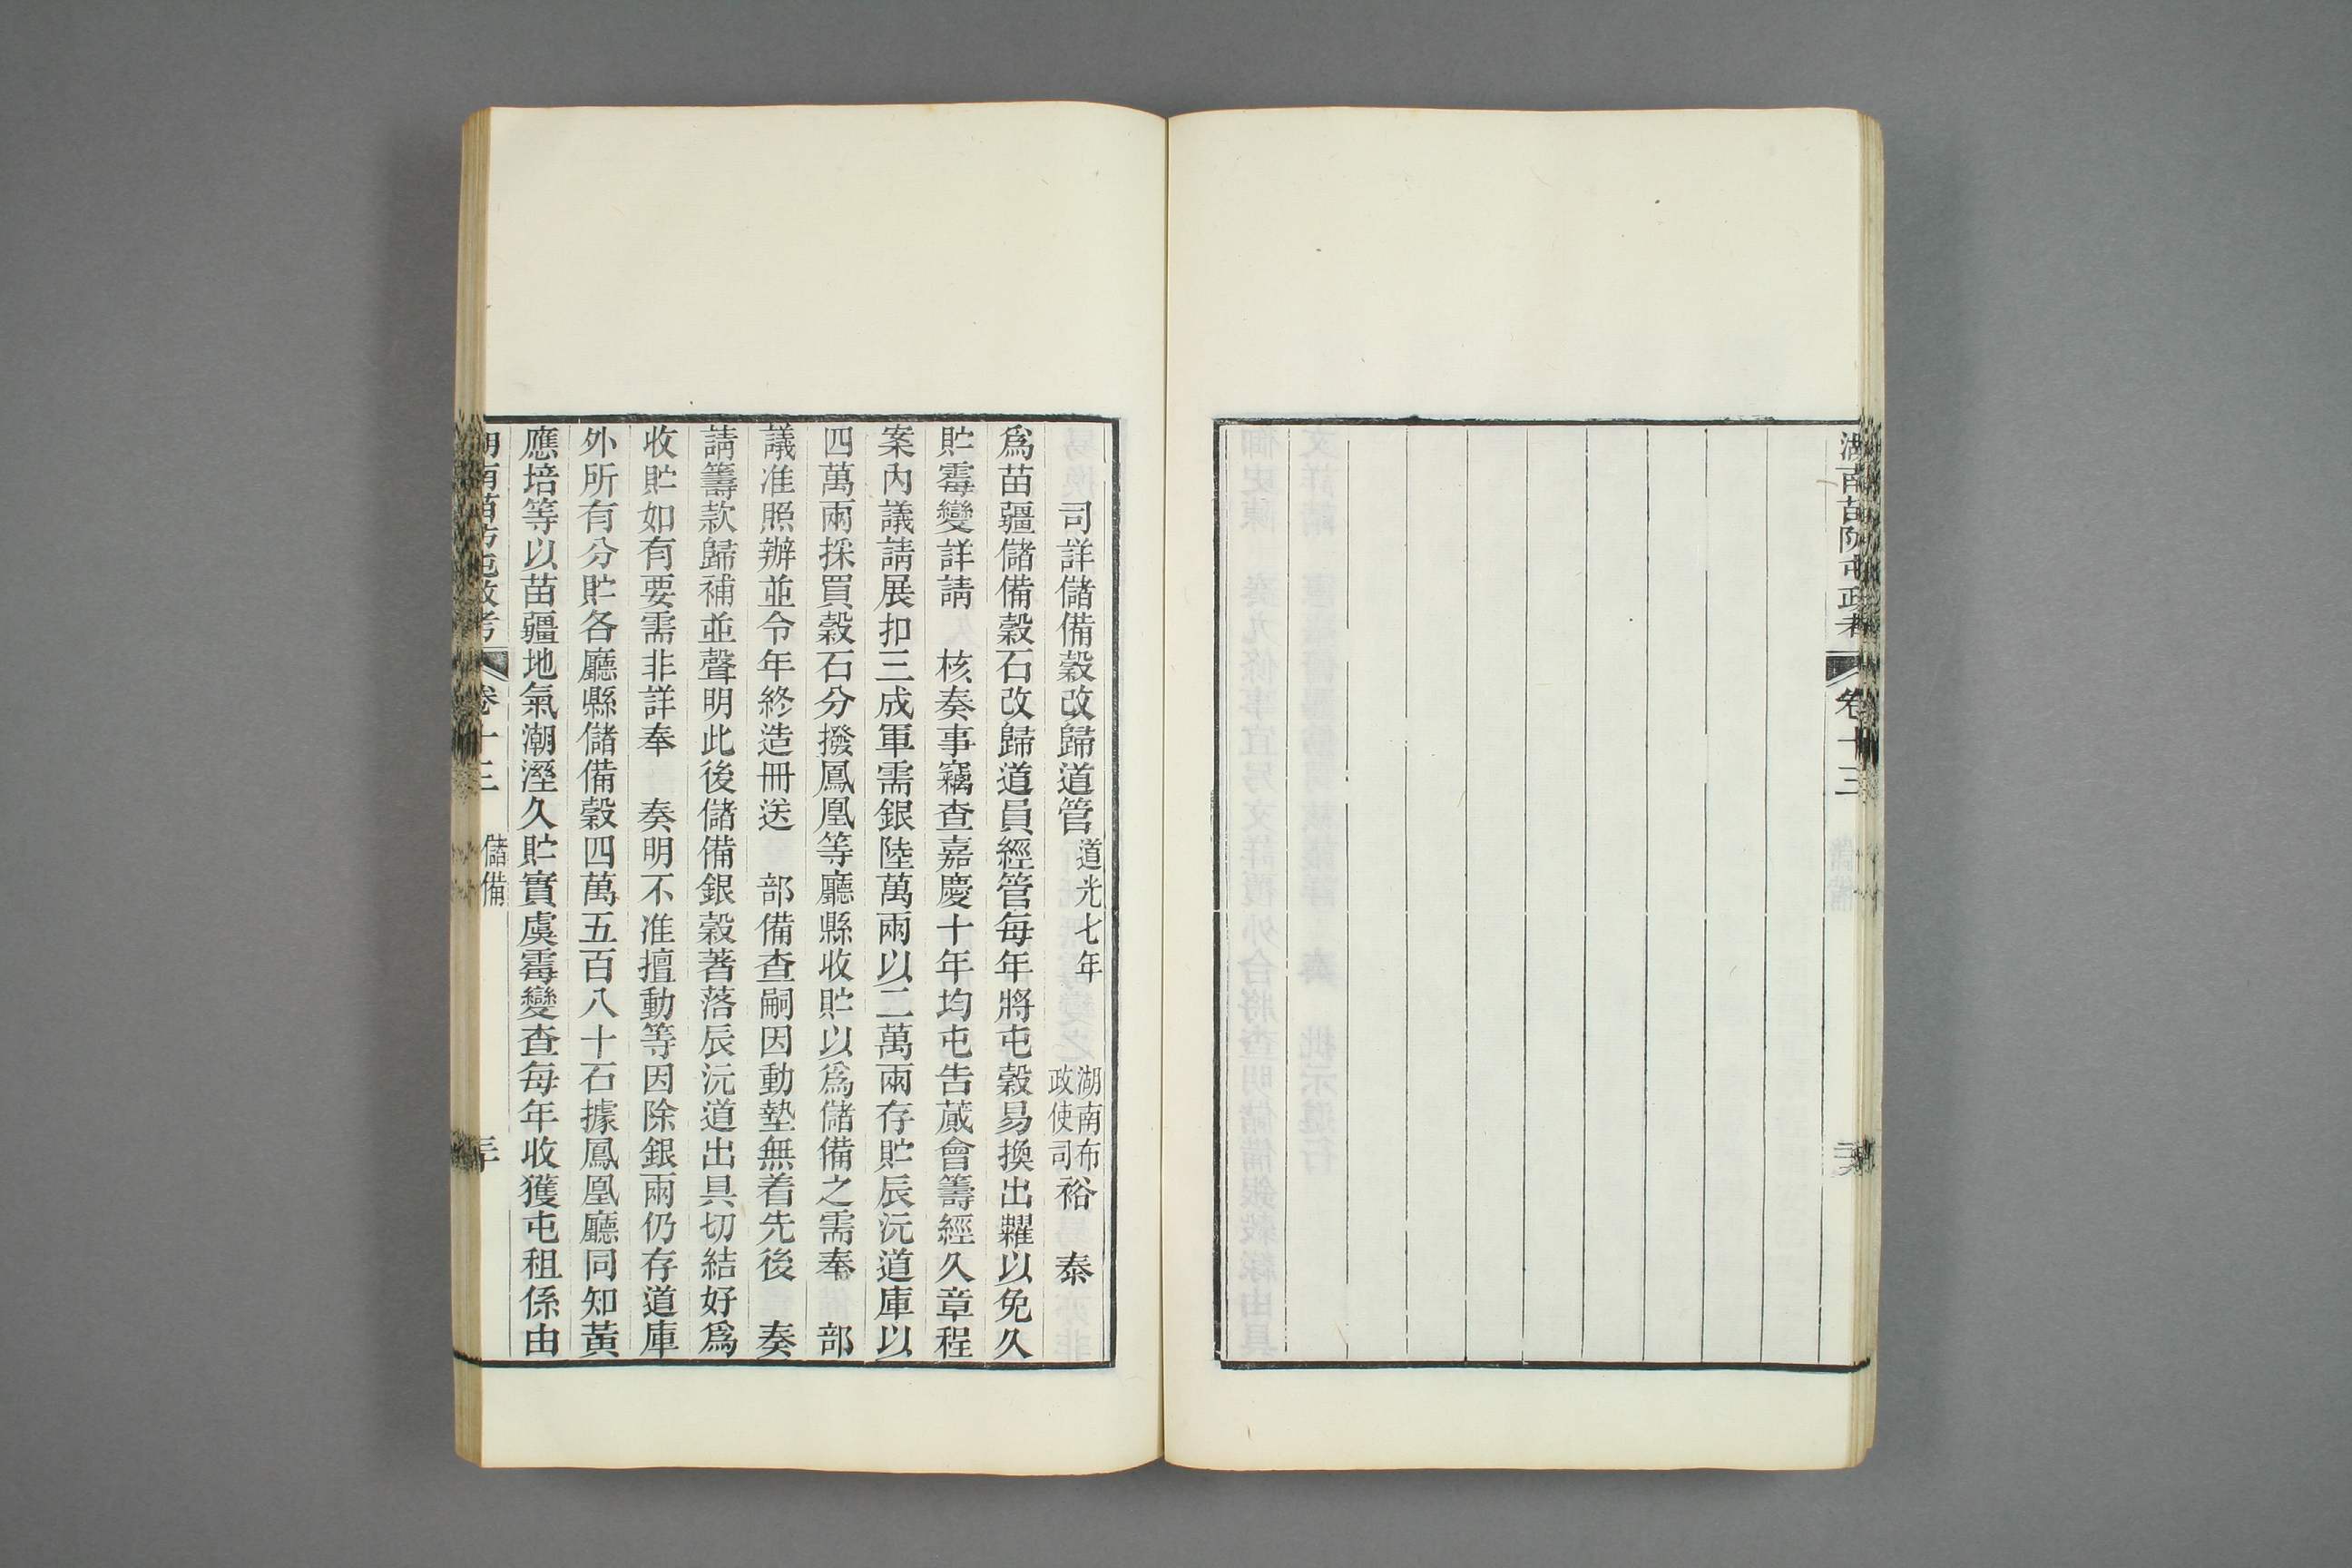 湖南苗防屯政考 卷十三
司詳儲備穀改歸道管 道光七年 湖南布政使司裕 泰
爲苗疆儲備穀石改歸道員經管每年將屯穀易換出糶以免久
貯霉變詳請 核奏事竊查嘉慶十年均屯告蕆會籌經久章程
案內議請展扣三成軍需銀陸萬兩以二萬兩存貯辰沅道庫以
四萬兩採買穀石分撥鳳凰等廳縣收貯以爲儲備之需奉 部
議准照辦並令年終造冊送 部備查嗣因動墊無着先後 奏
請籌款歸補並聲明此後儲備銀穀著落辰沅道出具切結好爲
收貯如有要需非詳奉 奏明不准擅動等因除銀兩仍存道庫
外所有分貯各廳縣儲備穀四萬五百八十石據鳳凰廳同知黃
應培等以苗疆地氣潮溼久貯實虞霉變查每年收獲屯租係由
湖南苗防屯政考 卷十三 儲備